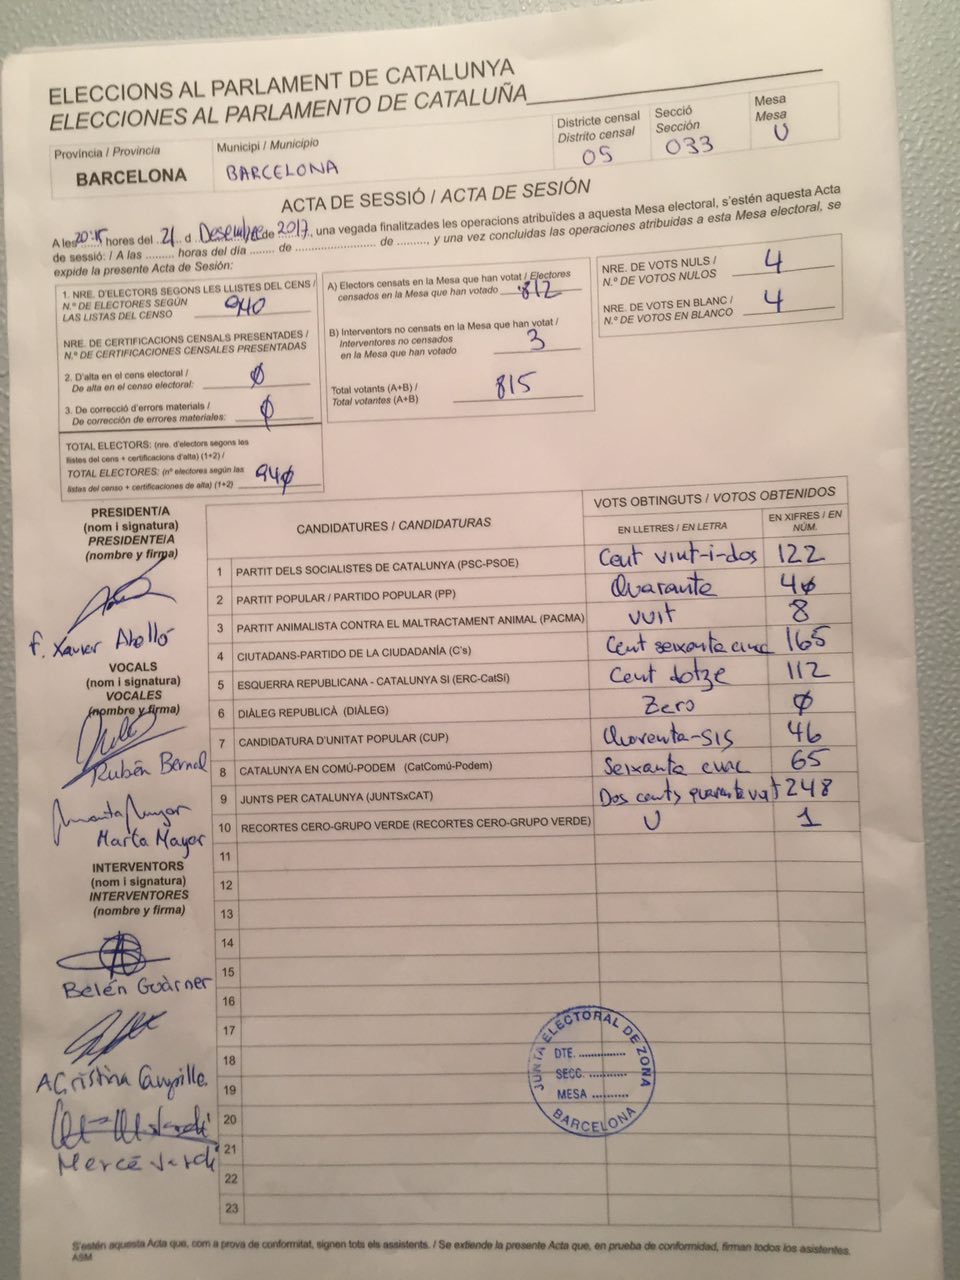 ELECCIONS AL PARLAMENT DE CATALUNYA
ELECCIONES AL PARLAMENTO DE CATALUÑA
Província / Provincia
BARCELONA
Municipi / Municipio
BARCELONA
Districte censal
Distrito censal
05
Secció
Sección
033
Mesa
Mesa
U
ACTA DE SESSIÓ / ACTA DE SESIÓN
A les 20:15 hores del 21 d Desembre de 2017, una vegada finalitzades les operacions atribuïdes a aquesta Mesa electoral, s'estén aquesta Acta
de sessió: / A las ......... horas del día ....... de ........................ de ........., y una vez concluidas las operaciones atribuidas a esta Mesa electoral, se
expide la presente Acta de Sesión:
1. NRE. D'ELECTORS SEGONS LES LLISTES DEL CENS /
N.º DE ELECTORES SEGÚN
LAS LISTAS DEL CENSO 940
NRE. DE CERTIFICACIONS CENSALS PRESENTADES /
N.º DE CERTIFICACIONES CENSALES PRESENTADAS
2. D'alta en el cens electoral /
De alta en el censo electoral: 0
3. De correcció d'errors materials /
De corrección de errores materiales: 0
TOTAL ELECTORS: (nre. d'electors segons les
llistes del cens + certificacions d'alta) (1+2) /
TOTAL ELECTORES: (nº electores según las
listas del censo + certificaciones de alta) (1+2) 940
A) Electors censats en la Mesa que han votat / Electores
censados en la Mesa que han votado 812
B) Interventors no censats en la Mesa que han votat /
Interventores no censados
en la Mesa que han votado 3
Total votants (A+B) /
Total votantes (A+B) 815
NRE. DE VOTS NULS /
N.º DE VOTOS NULOS 4
NRE. DE VOTS EN BLANC /
N.º DE VOTOS EN BLANCO 4
PRESIDENT/A
(nom i signatura)
PRESIDENTE/A
(nombre y firma)
F. Xavier Abelló
VOCALS
(nom i signatura)
VOCALES
(nombre y firma)
Rubén Bernal
Marta Mayor
INTERVENTORS
(nom i signatura)
INTERVENTORES
(nombre y firma)
Belén Guàrner
A Cristina
Mercé Jardí
CANDIDATURES / CANDIDATURAS
VOTS OBTINGUTS / VOTOS OBTENIDOS
EN LLETRES / EN LETRA
EN XIFRES / EN NÚM.
1 PARTIT DELS SOCIALISTES DE CATALUNYA (PSC-PSOE) Cent vint-i-dos 122
2 PARTIT POPULAR / PARTIDO POPULAR (PP) Quaranta 40
3 PARTIT ANIMALISTA CONTRA EL MALTRACTAMENT ANIMAL (PACMA) vuit 8
4 CIUTADANS-PARTIDO DE LA CIUDADANÍA (C's) Cent seixanta cinc 165
5 ESQUERRA REPUBLICANA - CATALUNYA SI (ERC-CatSí) Cent dotze 112
6 DIÀLEG REPUBLICÀ (DIÀLEG) Zero 0
7 CANDIDATURA D'UNITAT POPULAR (CUP) Choventa-sis 46
8 CATALUNYA EN COMÚ-PODEM (CatComú-Podem) Seixanta cinc 65
9 JUNTS PER CATALUNYA (JUNTSxCAT) Dos cents quaranta vuit 248
10 RECORTES CERO-GRUPO VERDE (RECORTES CERO-GRUPO VERDE) U 1
11
12
13
14
15
16
17
18
19
20
21
22
23
JUNTA ELECTORAL DE ZONA
DTE. ..............
SECC. ...........
MESA ..........
BARCELONA
S'estén aquesta Acta que, com a prova de conformitat, signen tots els assistents. / Se extiende la presente Acta que, en prueba de conformidad, firman todos los asistentes.
ASM